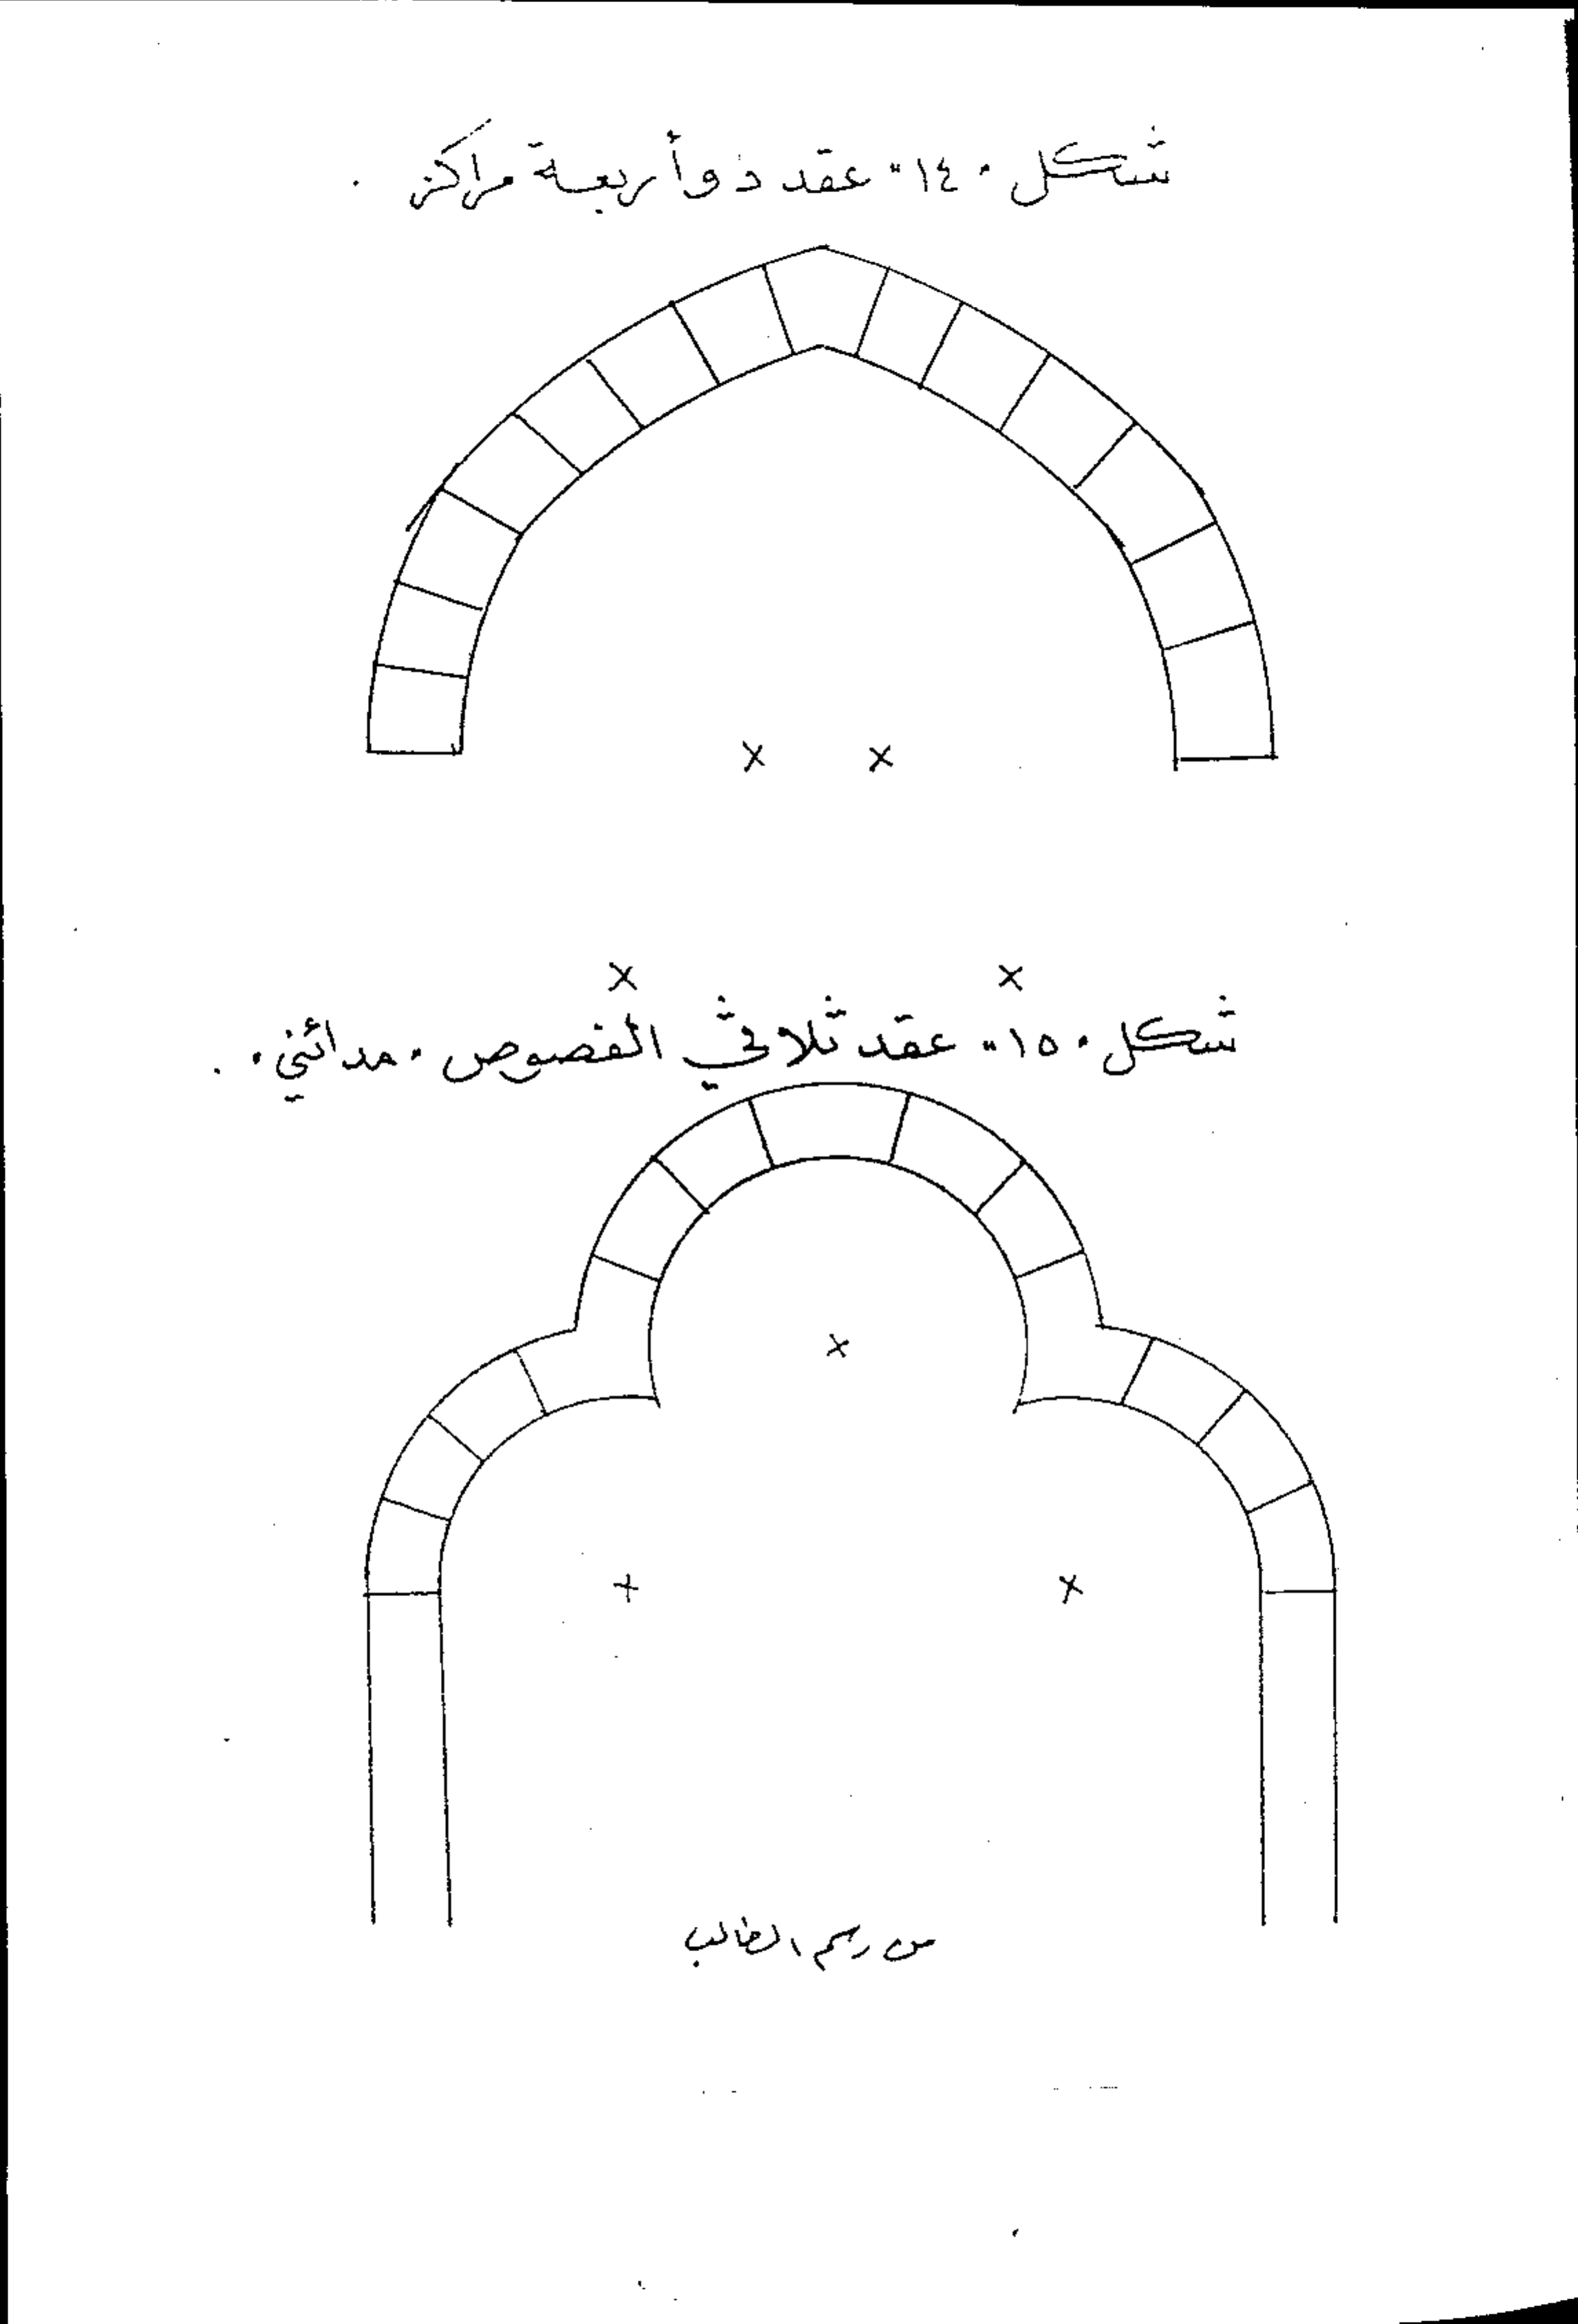 شكل "١٤" عقد ذو أربعة مراكز .
شكل "١٥" عقد ثلاثي الفصوص "مدائني" .
من رسم الطالب